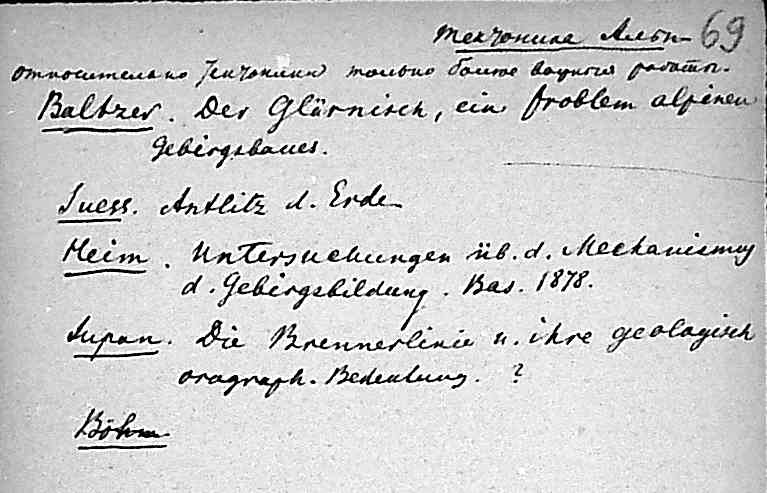 Тектоника Альп 69
относительно тектоники только более важныя работы.
Baltzer. Der Glärnisch, ein Problem alpinen
Gebirgsbaues.
Suess. Antlitz d. Erde
Heim. Untersuchungen üb. d. Mechanismus
d. Gebirgsbildung. Bas. 1878.
Supan. Die Brennerlinie u. ihre geologisch
orograph. Bedeutung. ?
Böhm.